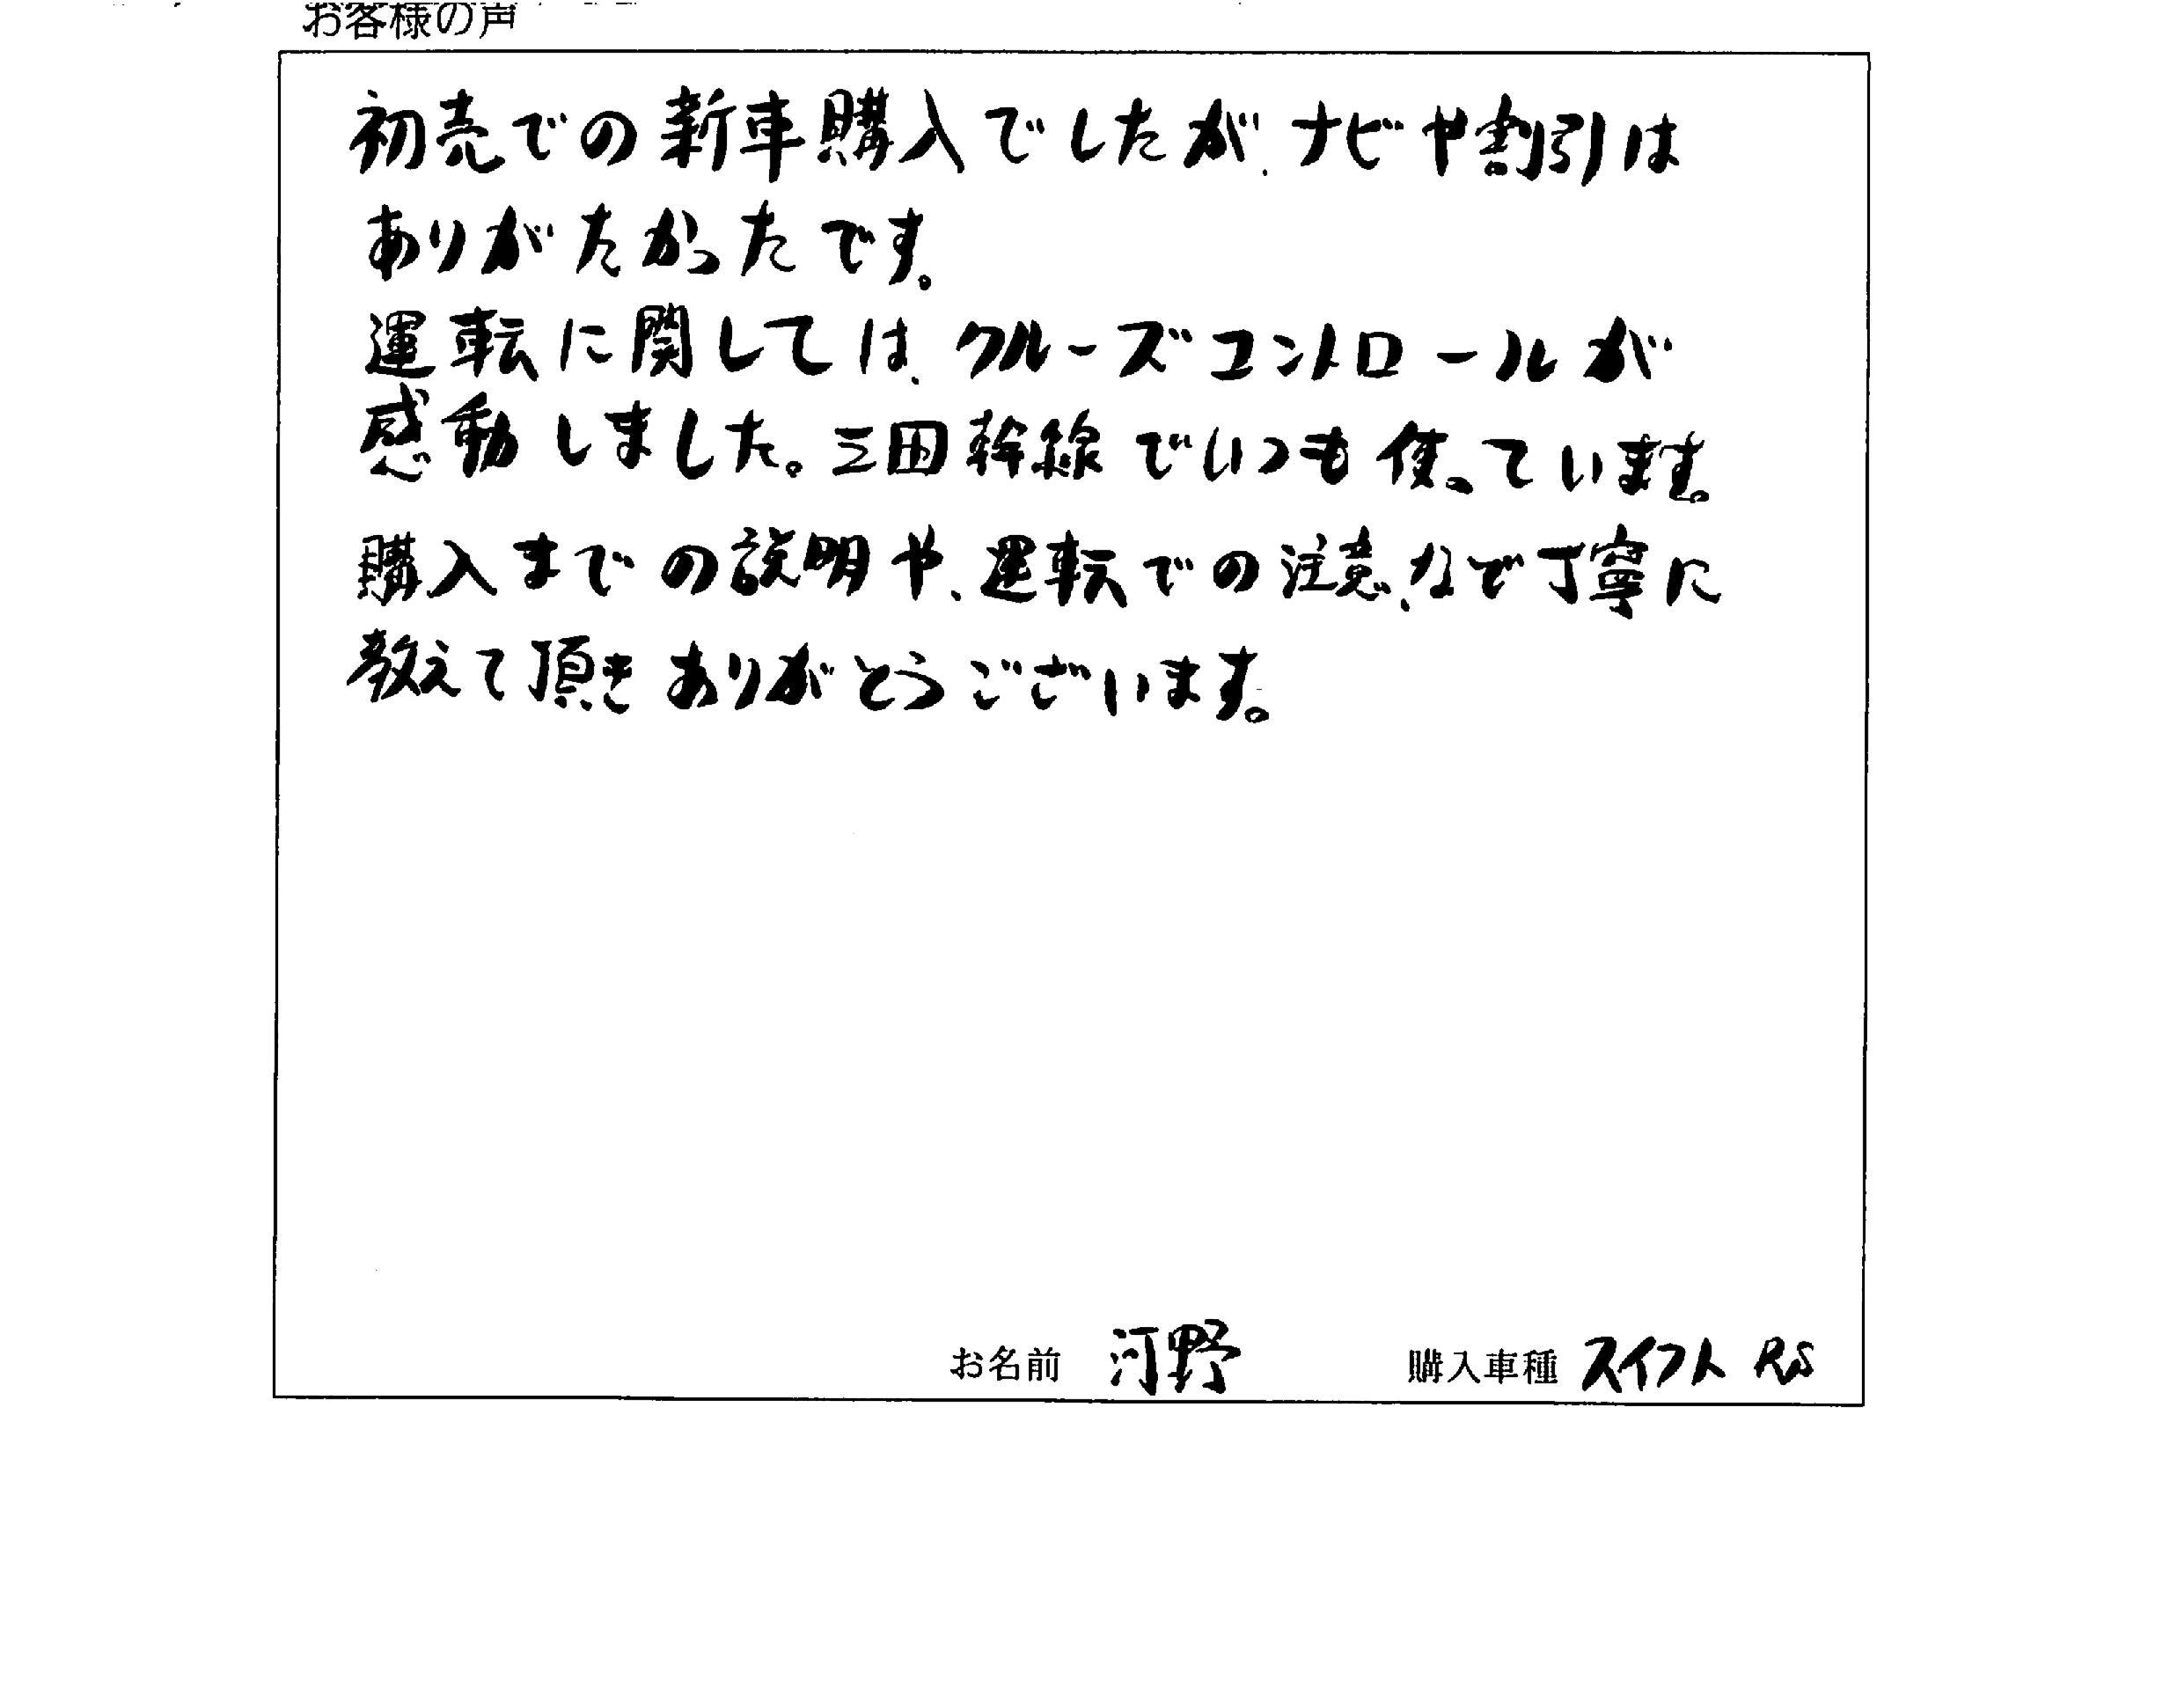 お客様の声
初売での新車購入でしたが、ナビや割引は
ありがたかったです。
運転に関しては、クルーズコントロールが
感動しました。三田幹線でいつも使っています。
購入までの説明や、運転での注意、など丁寧に
教えて頂きありがとうございます。
お名前 河野 購入車種 スイフト RS